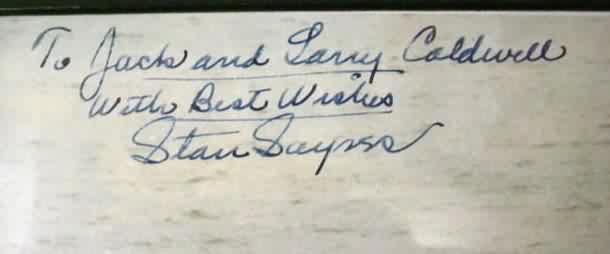 To Jack and Larry Caldwell
With Best Wishes
Stan Sayres